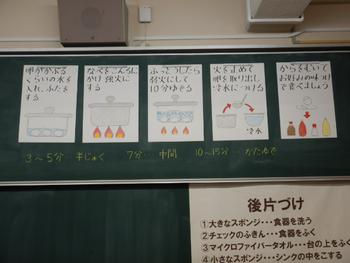 卵がかぶる
くらいの水を
入れ、ふたを
する
なべをこんろに
かけ強火に
する
ふっとうしたら
弱火にして
10分ゆでる
火を止めて
卵を取り出し
冷水につける
冷水
からをむいて
お好みの味つけ
で食べましょう
3〜5分 半じゅく 7分…中間 10〜15分…かたゆで
後片づけ
①大きなスポンジ・・・食器を洗う
②チェックのふきん・・・食器をふく
③マイクロファイバータオル・・・台の上をふく
④小さなスポンジ・・・シンクの中をこする